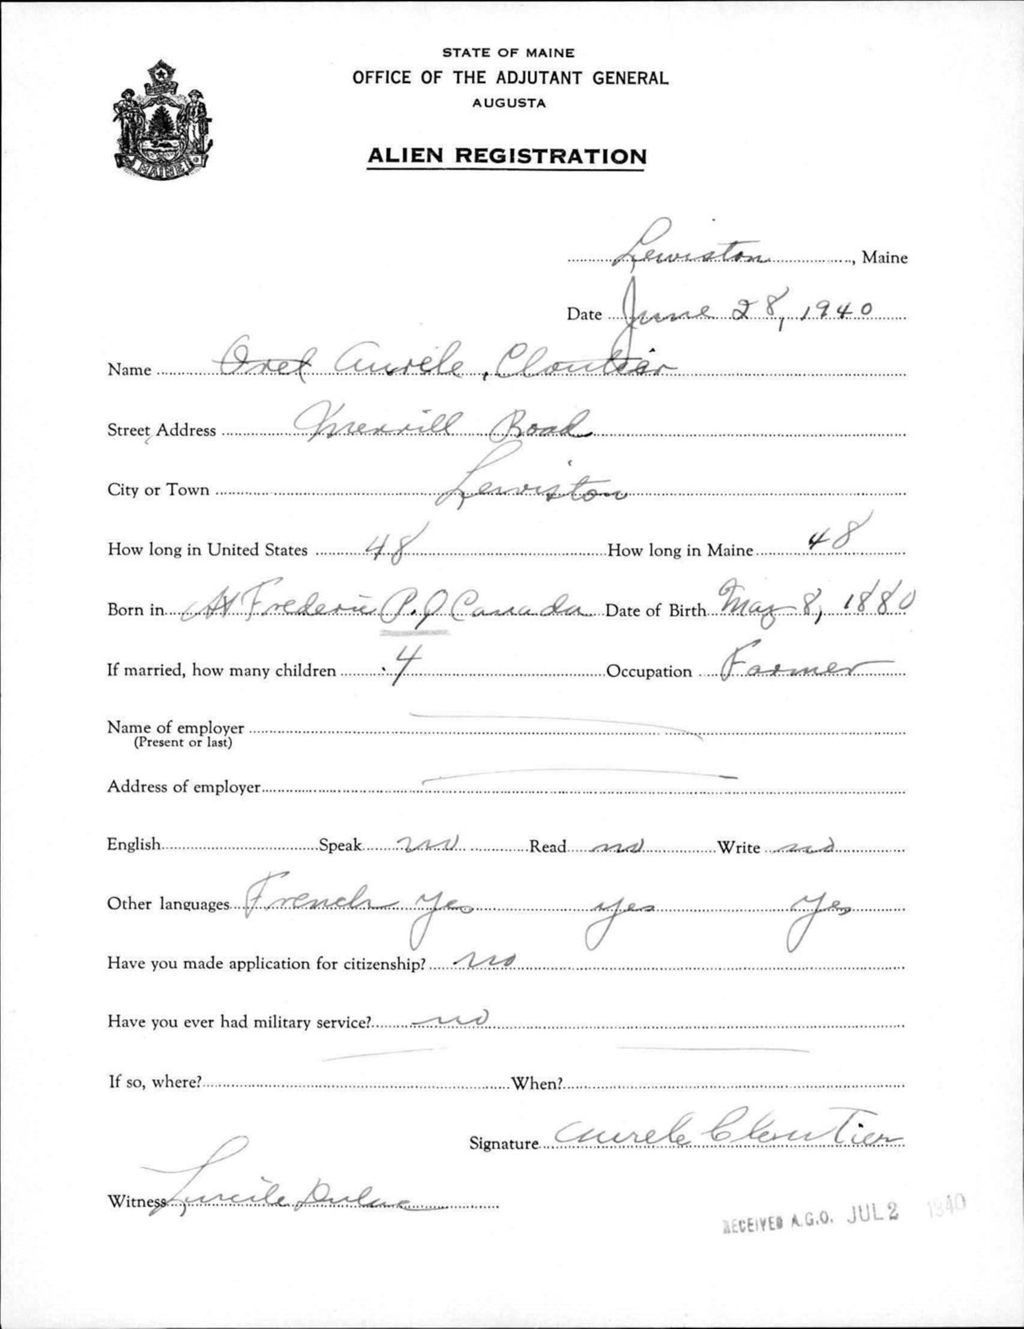 STATE OF MAINE
OFFICE OF THE ADJUTANT GENERAL
AUGUSTA
ALIEN REGISTRATION
MAINE
Lewiston, Maine
Date June 28, 1940
Name Aurele, Cloutier
Street Address Merrill Road
City or Town Lewiston
How long in United States 48 How long in Maine 48
Born in St Frederic P.Q Canada Date of Birth May 8, 1880
If married, how many children 4 Occupation Farmer
Name of employer
(Present or last)
Address of employer
English Speak no Read no Write no
Other languages French yes yes yes
Have you made application for citizenship? no
Have you ever had military service? no
If so, where? When?
Signature Aurele Cloutier
Witness Lucile Dulac
RECEIVED A.G.O. JUL 2 1940